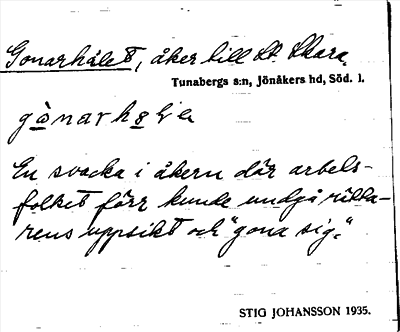 Gonarhålet, åker till St. Skara,
Tunabergs s:n, Jönåkers hd, Söd. l.
En svacka i åkern där arbets-
folket förr kunde undgå rätta-
rens uppsikt och "gona sig."
STIG JOHANSSON 1935.